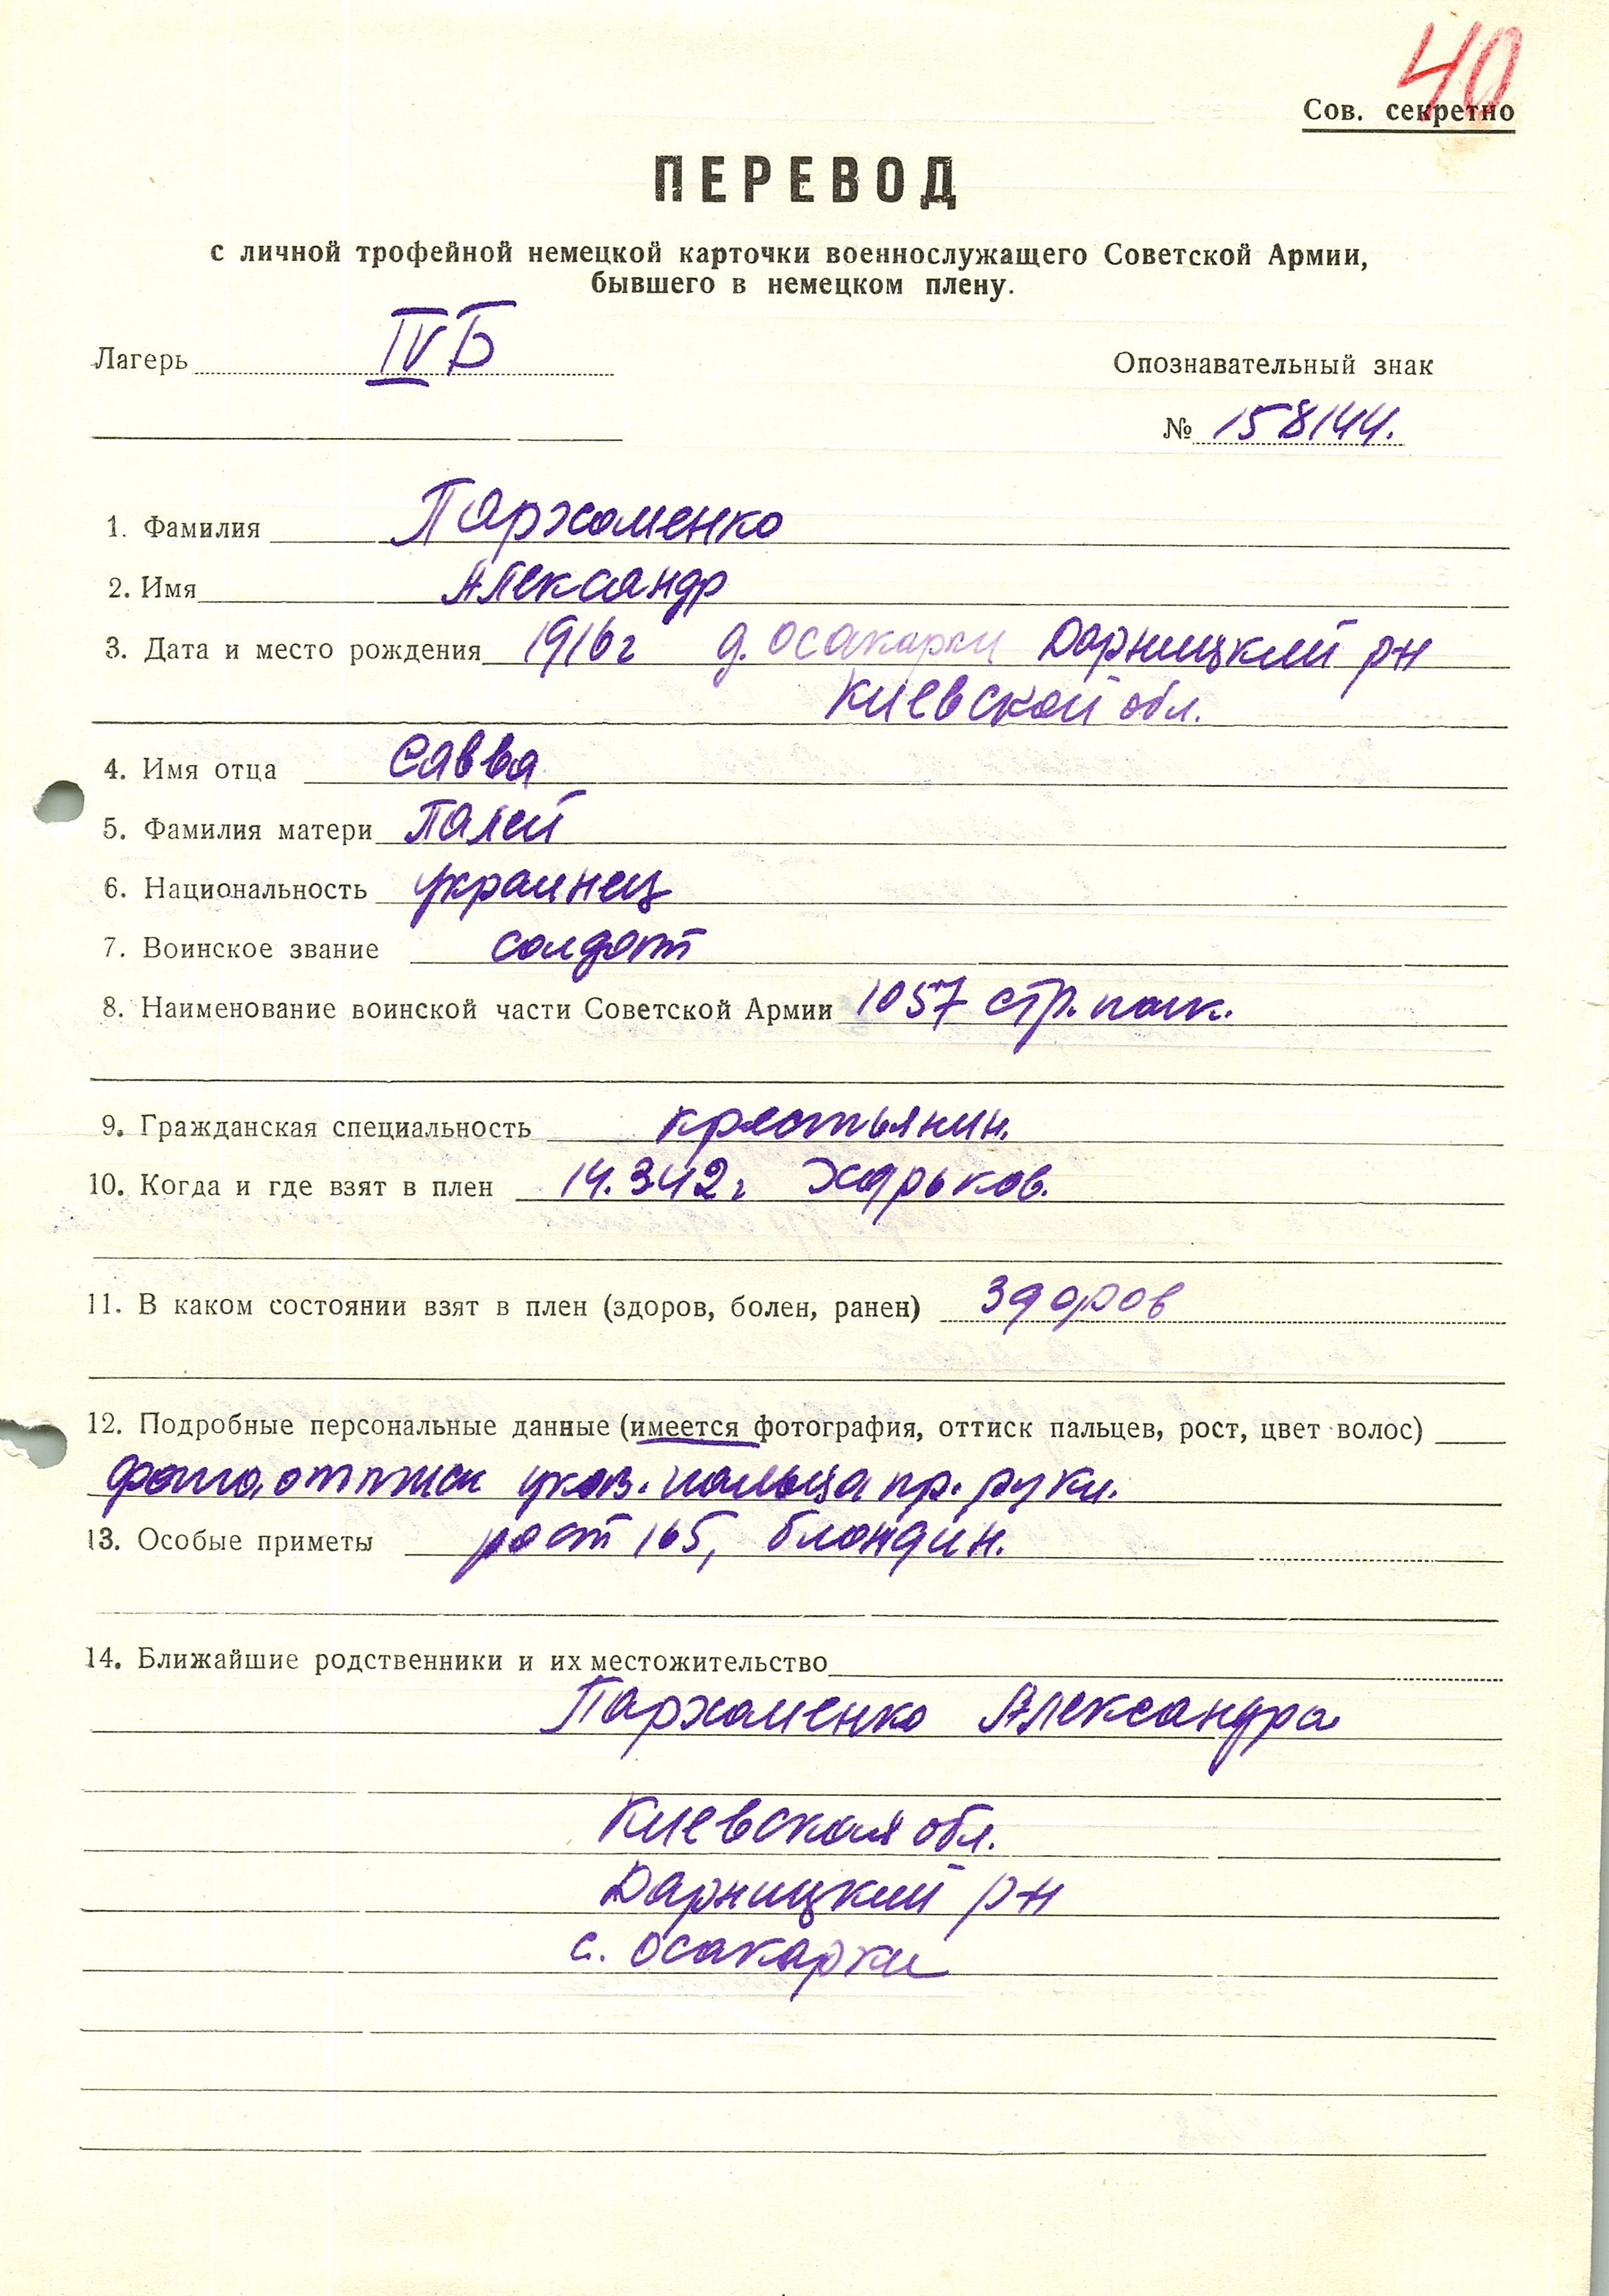 40
Сов. секретно
ПЕРЕВОД
с личной трофейной немецкой карточки военнослужащего Советской Армии,
бывшего в немецком плену.
Лагерь IV Б
Опознавательный знак
№ 158144.
1. Фамилия Пархоменко
2. Имя Александр
3. Дата и место рождения 1916 г д. Осакарки Дарницкий рн
Киевской обл.
4. Имя отца Савва
5. Фамилия матери Палей
6. Национальность украинец
7. Воинское звание солдат
8. Наименование воинской части Советской Армии 1057 стр. полк.
9. Гражданская специальность крестьянин.
10. Когда и где взят в плен 14.3.42 г Харьков.
11. В каком состоянии взят в плен (здоров, болен, ранен) здоров
12. Подробные персональные данные (имеется фотография, оттиск пальцев, рост, цвет волос)
фото, оттиск указ. пальца пр. руки.
13. Особые приметы рост 165, блондин.
14. Ближайшие родственники и их местожительство
Пархоменко Александра
Киевская обл.
Дарницкий рн
с. Осакарки